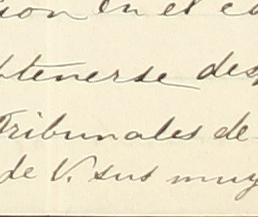 sion en el ca
btenerse desp
Tribunales de
de V. sus muy